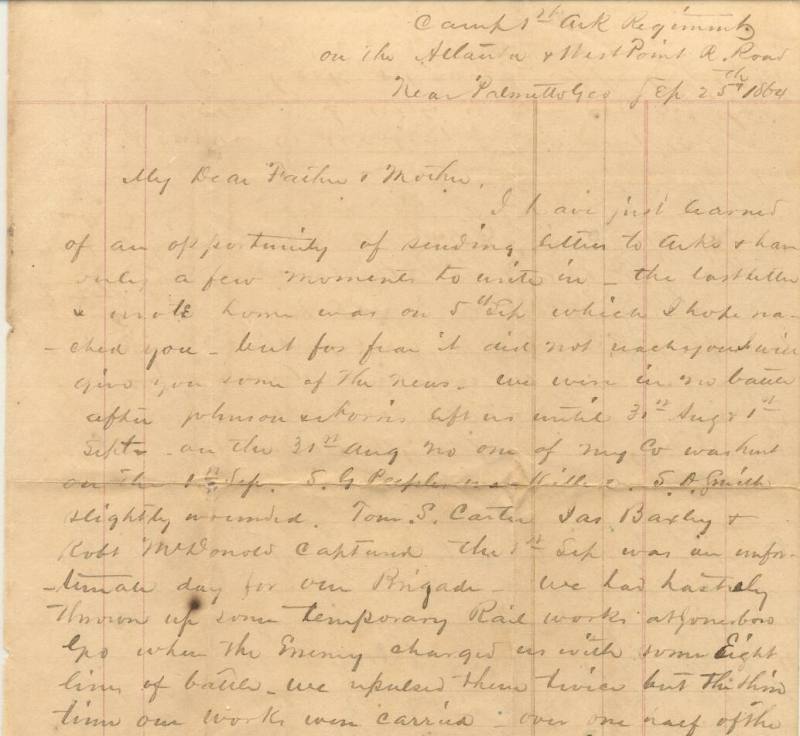 Camp 1st Ark Regiment
on the Atlanta & West Point R. Road
Near Palmetto Geo Sep 25th 1864
My Dear Father & Mother,
I have just learned
of an opportunity of sending letters to Arks & have
only a few moments to write in - the last letter
I wrote home was on 5th Sep which I hope rea-
-ched you - but for fear it did not reach you I will
give you some of the news - we were in no battle
after Johnson & Morris left us until 31st Aug & 1st
Sept - on the 31st Aug no one of my Co was hurt
on the 1st Sep. S. G Peeples was killed. S. A. Smith
slightly wounded. Tom. S. Carter Jas Baxley &
Robt McDonold captured the 1st Sep was an unfor-
-tunate day for our Brigade - we had hastely
thrown up some temporary Rail works at Jonesboro
Geo when the Enemy charged us with some Eight
lines of battle - we repulsed them twice but the third
time our works were carried - over one half of the